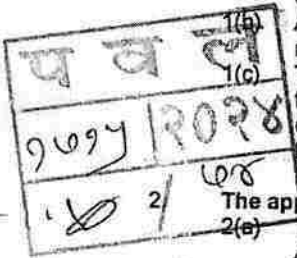 1(b)
प व ल
1(c)
१७१५ २०२४
/ ७४
2
The app
2(a)